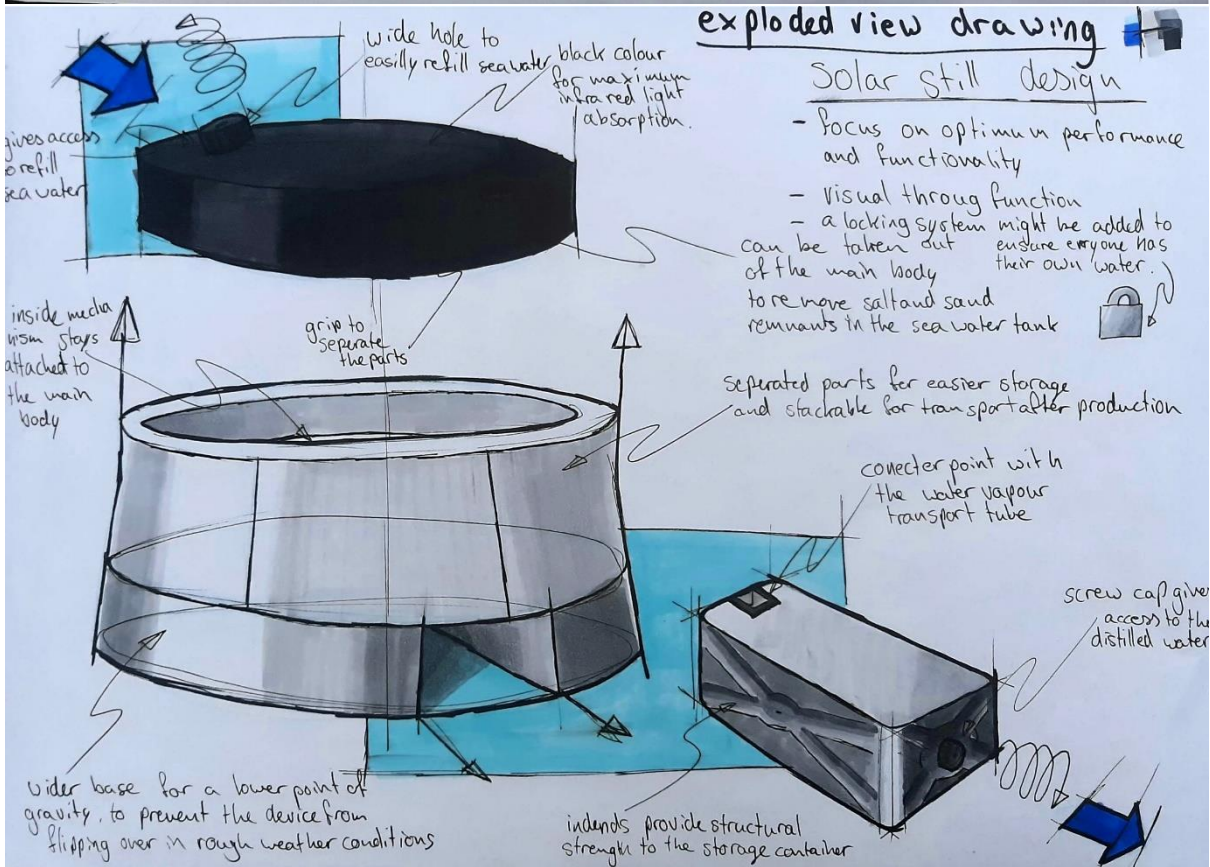 exploded view drawing
Solar still design
- focus on optimum performance
and functionality
- visual throug function
- a locking system might be added to
ensure everyone has
their own water.
wide hole to
easilly refill seawater
black colour
for maximum
infrared light
absorption.
gives access
to refill
sea water
can be taken out
of the main body
to remove salt and sand
remnants in the sea water tank
grip to
seperate
the parts
inside mecha
nism stays
attached to
the main
body
seperated parts for easier storage
and stackable for transport after production
conecter point with
the water vapour
transport tube
screw cap gives
access to the
distilled water
wider base for a lower point of
gravity, to prevent the device from
flipping over in rough weather conditions
indends provide structural
strength to the storage container